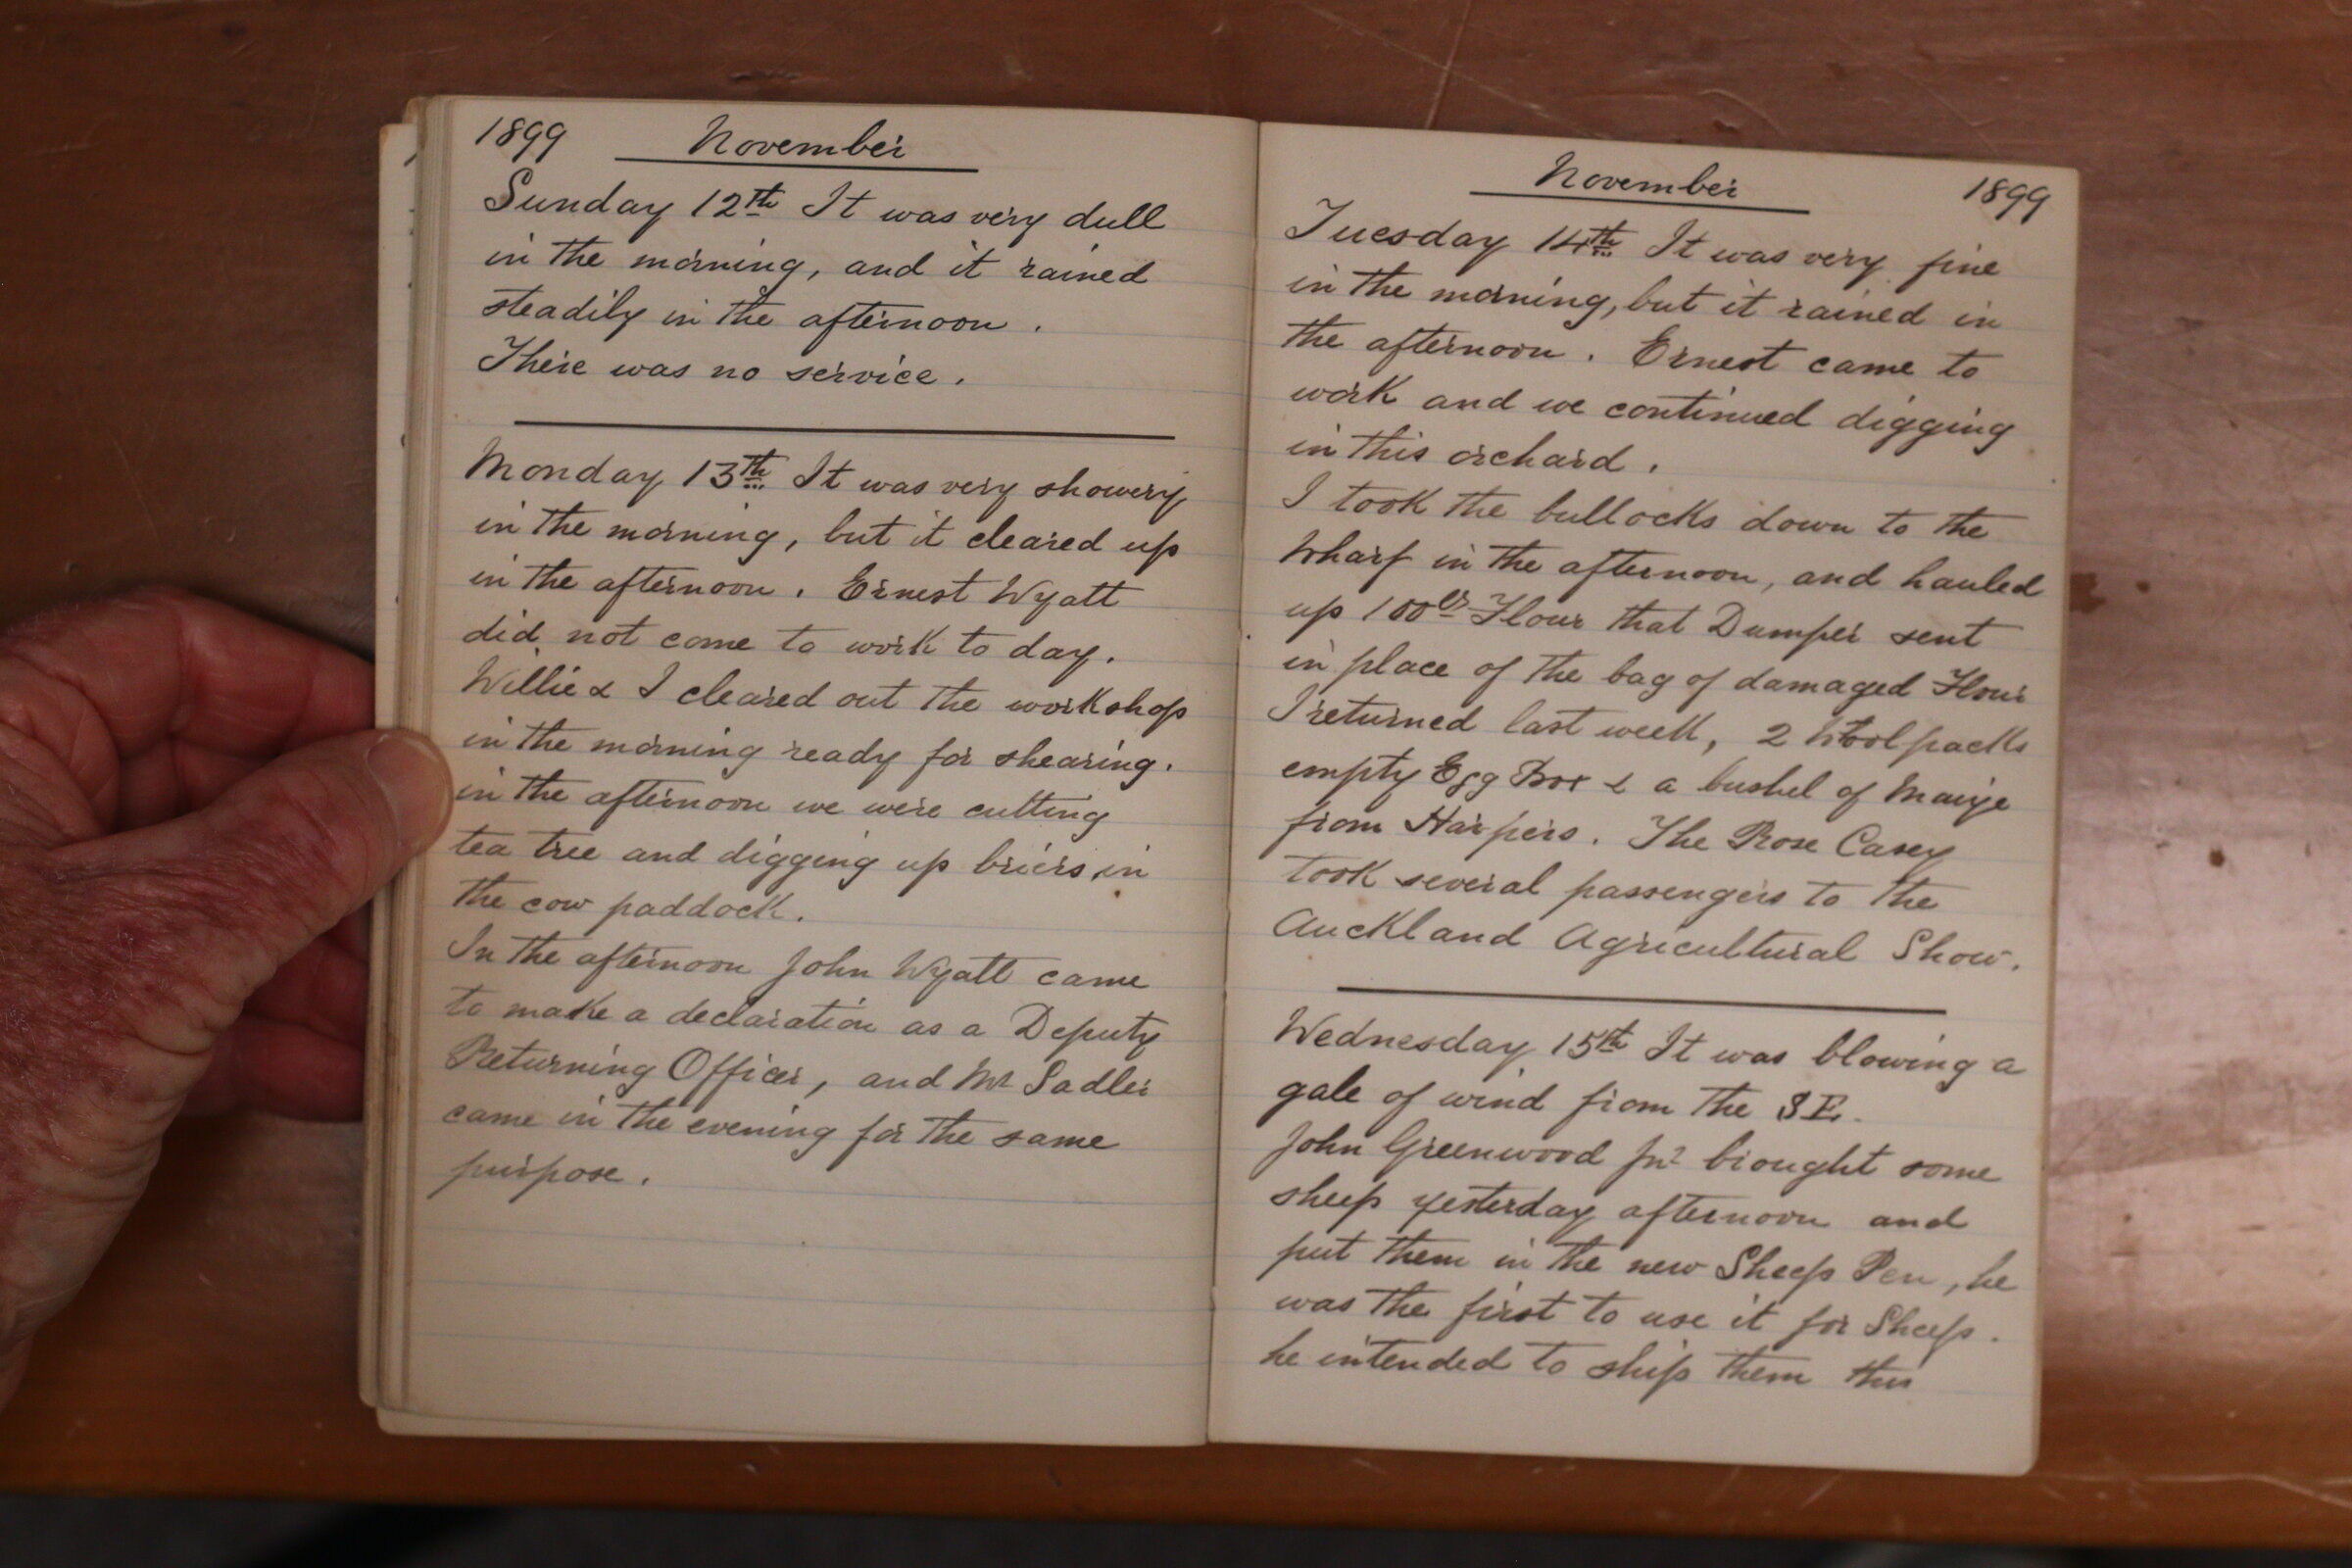 1899 November
Sunday 12th It was very dull
in the morning, and it rained
steadily in the afternoon.
There was no service.
Monday 13th It was very showery
in the morning, but it cleared up
in the afternoon. Ernest Wyatt
did not come to work to day.
Willie & I cleared out the workshop
in the morning ready for shearing.
in the afternoon we were cutting
tea tree and digging up briers in
the cow paddock.
In the afternoon John Wyatt came
to make a declaration as a Deputy
Returning Officer, and Mr Sadler
came in the evening for the same
purpose.
November 1899
Tuesday 14th It was very fine
in the morning, but it rained in
the afternoon. Ernest came to
work and we continued digging
in this orchard.
I took the bullocks down to the
Wharf in the afternoon, and hauled
up 100 lbs Flour that Dumper sent
in place of the bag of damaged Flour
I returned last week, 2 Woolpacks
empty Egg Box & a bushel of Maize
from Harpers. The Rose Casey
took several passengers to the
Auckland Agricultural Show.
Wednesday 15th It was blowing a
gale of wind from the S E.
John Greenwood Jnr brought some
sheep yesterday afternoon and
put them in the new Sheep Pen, he
was the first to use it for Sheep.
he intended to ship them this